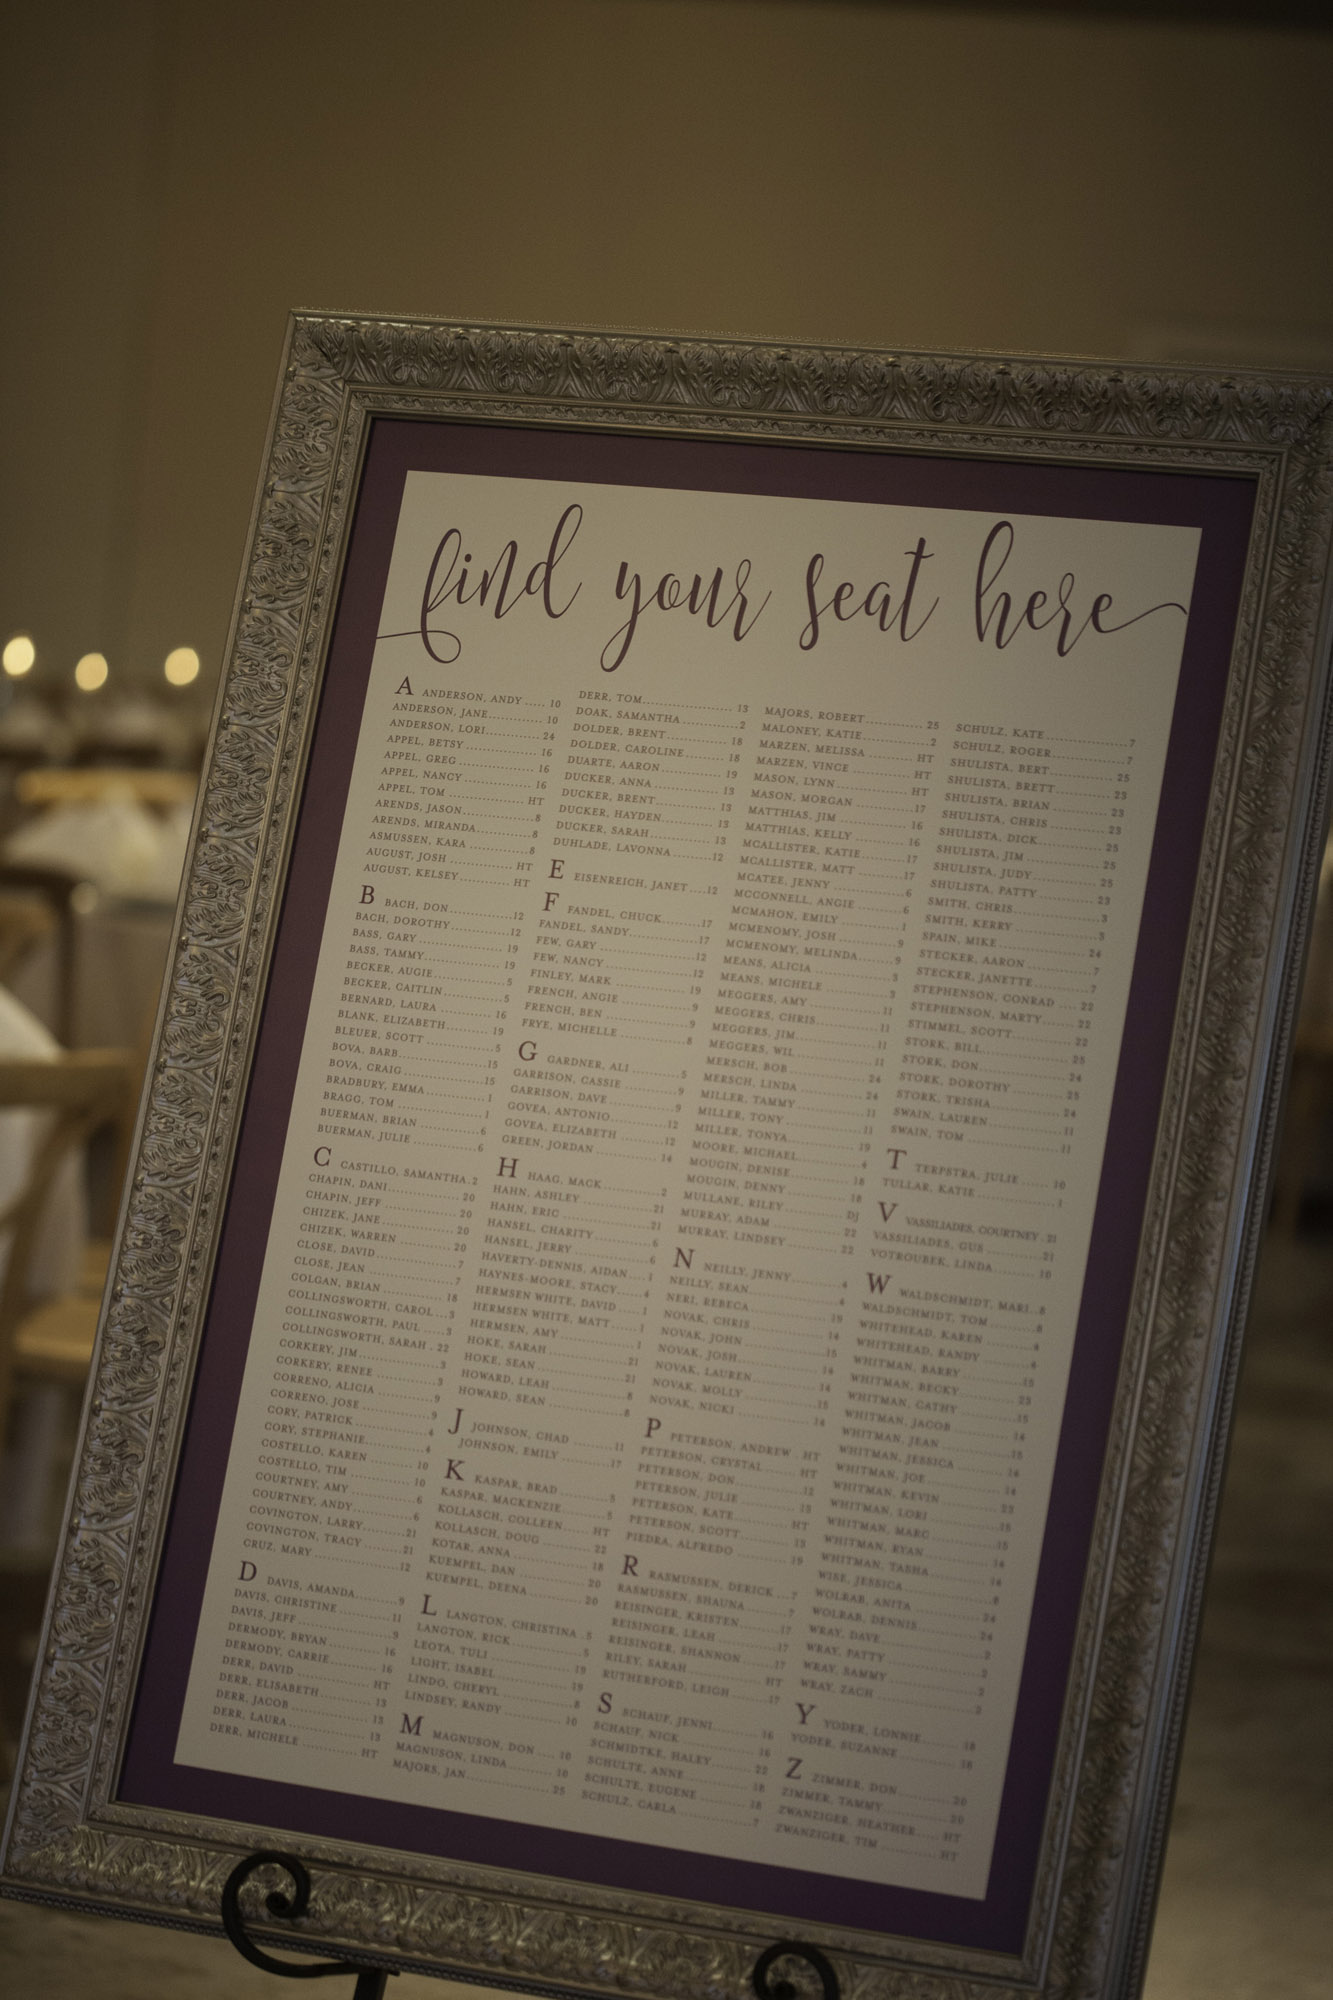 find your seat here
A ANDERSON, ANDY ..... 10
ANDERSON, JANE ..... 10
ANDERSON, LORI ..... 24
APPEL, BETSY ..... 16
APPEL, GREG ..... 16
APPEL, NANCY ..... 16
APPEL, TOM ..... HT
ARENDS, JASON ..... 8
ARENDS, MIRANDA ..... 8
ASMUSSEN, KARA ..... 8
AUGUST, JOSH ..... HT
AUGUST, KELSEY ..... HT
B BACH, DON ..... 12
BACH, DOROTHY ..... 12
BASS, GARY ..... 19
BASS, TAMMY ..... 19
BECKER, AUGIE ..... 5
BECKER, CAITLIN ..... 5
BERNARD, LAURA ..... 16
BLANK, ELIZABETH ..... 19
BLEUER, SCOTT ..... 5
BOVA, BARB ..... 15
BOVA, CRAIG ..... 15
BRADBURY, EMMA ..... 1
BRAGG, TOM ..... 1
BUERMAN, BRIAN ..... 6
BUERMAN, JULIE ..... 6
C CASTILLO, SAMANTHA . 2
CHAPIN, DANI ..... 20
CHAPIN, JEFF ..... 20
CHIZEK, JANE ..... 20
CHIZEK, WARREN ..... 20
CLOSE, DAVID ..... 7
CLOSE, JEAN ..... 7
COLGAN, BRIAN ..... 18
COLLINGSWORTH, CAROL ... 3
COLLINGSWORTH, PAUL ..... 3
COLLINGSWORTH, SARAH . 22
CORKERY, JIM ..... 3
CORKERY, RENEE ..... 3
CORRENO, ALICIA ..... 9
CORRENO, JOSE ..... 9
CORY, PATRICK ..... 4
CORY, STEPHANIE ..... 4
COSTELLO, KAREN ..... 10
COSTELLO, TIM ..... 10
COURTNEY, AMY ..... 6
COURTNEY, ANDY ..... 6
COVINGTON, LARRY ..... 21
COVINGTON, TRACY ..... 21
CRUZ, MARY ..... 12
D DAVIS, AMANDA ..... 9
DAVIS, CHRISTINE ..... 11
DAVIS, JEFF ..... 9
DERMODY, BRYAN ..... 16
DERMODY, CARRIE ..... 16
DERR, DAVID ..... HT
DERR, ELISABETH ..... 13
DERR, JACOB ..... 13
DERR, LAURA ..... 13
DERR, MICHELE ..... HT
DERR, TOM ..... 13
DOAK, SAMANTHA ..... 2
DOLDER, BRENT ..... 18
DOLDER, CAROLINE ..... 18
DUARTE, AARON ..... 19
DUCKER, ANNA ..... 13
DUCKER, BRENT ..... 13
DUCKER, HAYDEN ..... 13
DUCKER, SARAH ..... 13
DUHLADE, LAVONNA ..... 12
E EISENREICH, JANET .... 12
F FANDEL, CHUCK ..... 17
FANDEL, SANDY ..... 17
FEW, GARY ..... 12
FEW, NANCY ..... 12
FINLEY, MARK ..... 19
FRENCH, ANGIE ..... 9
FRENCH, BEN ..... 9
FRYE, MICHELLE ..... 8
G GARDNER, ALI ..... 5
GARRISON, CASSIE ..... 9
GARRISON, DAVE ..... 9
GOVEA, ANTONIO ..... 12
GOVEA, ELIZABETH ..... 12
GREEN, JORDAN ..... 14
H HAAG, MACK ..... 2
HAHN, ASHLEY ..... 21
HAHN, ERIC ..... 21
HANSEL, CHARITY ..... 6
HANSEL, JERRY ..... 6
HAVERTY-DENNIS, AIDAN .... 1
HAYNES-MOORE, STACY ..... 4
HERMSEN WHITE, DAVID ..... 1
HERMSEN WHITE, MATT ..... 1
HERMSEN, AMY ..... 1
HOKE, SARAH ..... 21
HOKE, SEAN ..... 21
HOWARD, LEAH ..... 8
HOWARD, SEAN ..... 8
J JOHNSON, CHAD ..... 11
JOHNSON, EMILY ..... 17
K KASPAR, BRAD ..... 5
KASPAR, MACKENZIE ..... 5
KOLLASCH, COLLEEN ..... HT
KOLLASCH, DOUG ..... 22
KOTAR, ANNA ..... 18
KUEMPEL, DAN ..... 20
KUEMPEL, DEENA ..... 20
L LANGTON, CHRISTINA . 5
LANGTON, RICK ..... 5
LEOTA, TULI ..... 19
LIGHT, ISABEL ..... 19
LINDO, CHERYL ..... 8
LINDSEY, RANDY ..... 10
M MAGNUSON, DON .... 10
MAGNUSON, LINDA ..... 10
MAJORS, JAN ..... 25
MAJORS, ROBERT ..... 25
MALONEY, KATIE ..... 2
MARZEN, MELISSA ..... HT
MARZEN, VINCE ..... HT
MASON, LYNN ..... HT
MASON, MORGAN ..... 17
MATTHIAS, JIM ..... 16
MATTHIAS, KELLY ..... 16
MCALLISTER, KATIE ..... 17
MCALLISTER, MATT ..... 17
MCATEE, JENNY ..... 6
MCCONNELL, ANGIE ..... 6
MCMAHON, EMILY ..... 1
MCMENOMY, JOSH ..... 9
MCMENOMY, MELINDA ..... 9
MEANS, ALICIA ..... 3
MEANS, MICHELE ..... 3
MEGGERS, AMY ..... 11
MEGGERS, CHRIS ..... 11
MEGGERS, JIM ..... 11
MEGGERS, WIL ..... 11
MERSCH, BOB ..... 24
MERSCH, LINDA ..... 24
MILLER, TAMMY ..... 11
MILLER, TONY ..... 11
MILLER, TONYA ..... 19
MOORE, MICHAEL ..... 4
MOUGIN, DENISE ..... 18
MOUGIN, DENNY ..... 18
MULLANE, RILEY ..... DJ
MURRAY, ADAM ..... 22
MURRAY, LINDSEY ..... 22
N NEILLY, JENNY ..... 4
NEILLY, SEAN ..... 4
NERI, REBECA ..... 19
NOVAK, CHRIS ..... 14
NOVAK, JOHN ..... 15
NOVAK, JOSH ..... 14
NOVAK, LAUREN ..... 14
NOVAK, MOLLY ..... 15
NOVAK, NICKI ..... 14
P PETERSON, ANDREW HT
PETERSON, CRYSTAL ..... HT
PETERSON, DON ..... 12
PETERSON, JULIE ..... 15
PETERSON, KATE ..... HT
PETERSON, SCOTT ..... 15
PIEDRA, ALFREDO ..... 19
R RASMUSSEN, DERICK ... 7
RASMUSSEN, SHAUNA ..... 7
REISINGER, KRISTEN ..... 17
REISINGER, LEAH ..... 17
REISINGER, SHANNON ..... 17
RILEY, SARAH ..... HT
RUTHERFORD, LEIGH ..... 17
S SCHAUF, JENNI ..... 16
SCHAUF, NICK ..... 16
SCHMIDTKE, HALEY ..... 22
SCHULTE, ANNE ..... 18
SCHULTE, EUGENE ..... 18
SCHULZ, CARLA ..... 7
SCHULZ, KATE ..... 7
SCHULZ, ROGER ..... 7
SHULISTA, BERT ..... 25
SHULISTA, BRETT ..... 23
SHULISTA, BRIAN ..... 23
SHULISTA, CHRIS ..... 23
SHULISTA, DICK ..... 25
SHULISTA, JIM ..... 25
SHULISTA, JUDY ..... 25
SHULISTA, PATTY ..... 23
SMITH, CHRIS ..... 3
SMITH, KERRY ..... 3
SPAIN, MIKE ..... 24
STECKER, AARON ..... 7
STECKER, JANETTE ..... 7
STEPHENSON, CONRAD .... 22
STEPHENSON, MARTY ..... 22
STIMMEL, SCOTT ..... 22
STORK, BILL ..... 25
STORK, DON ..... 24
STORK, DOROTHY ..... 25
STORK, TRISHA ..... 24
SWAIN, LAUREN ..... 11
SWAIN, TOM ..... 11
T TERPSTRA, JULIE ..... 10
TULLAR, KATIE ..... 1
V VASSILIADES, COURTNEY . 21
VASSILIADES, GUS ..... 21
VOTROUBEK, LINDA ..... 10
W WALDSCHMIDT, MARI .. 8
WALDSCHMIDT, TOM ..... 8
WHITEHEAD, KAREN ..... 4
WHITEHEAD, RANDY ..... 4
WHITMAN, BARRY ..... 15
WHITMAN, BECKY ..... 23
WHITMAN, CATHY ..... 15
WHITMAN, JACOB ..... 14
WHITMAN, JEAN ..... 15
WHITMAN, JESSICA ..... 14
WHITMAN, JOE ..... 14
WHITMAN, KEVIN ..... 23
WHITMAN, LORI ..... 15
WHITMAN, MARC ..... 15
WHITMAN, RYAN ..... 14
WHITMAN, TASHA ..... 14
WISE, JESSICA ..... 8
WOLRAB, ANITA ..... 24
WOLRAB, DENNIS ..... 24
WRAY, DAVE ..... 2
WRAY, PATTY ..... 2
WRAY, SAMMY ..... 2
WRAY, ZACH ..... 2
Y YODER, LONNIE ..... 18
YODER, SUZANNE ..... 18
Z ZIMMER, DON ..... 20
ZIMMER, TAMMY ..... 20
ZWANZIGER, HEATHER ..... HT
ZWANZIGER, TIM ..... HT